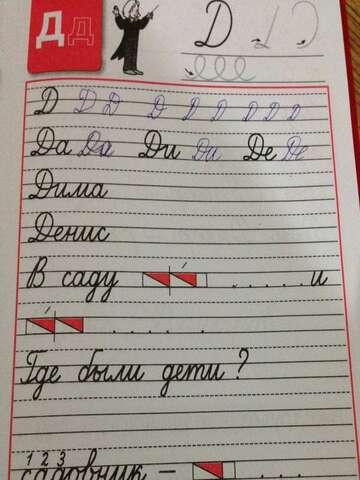 Д д
Д
Д Д Д Д Д Д Д Д Д
Да Да Ди Ди Де Де
Дима
Денис
В саду . . . . . и
. . . . .
Где были дети?
1 2 3
садовник –